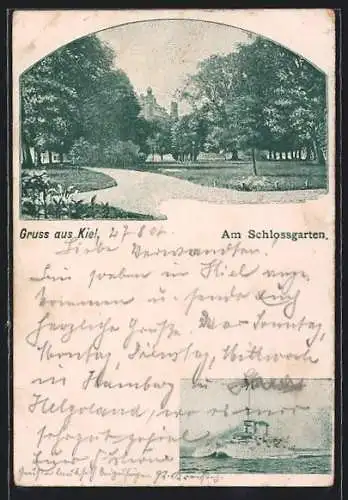 Gruss aus Kiel, 27/8 01
Am Schlossgarten.
Liebe Verwandten.
Bin soeben in Kiel ange
kommen u. sende Euch
herzliche Grüße. War Sonntag,
Montag, Dienstag, Mittwoch
in Hamburg u.
Helgoland, wo es mir
sehr gut gefiel
Euer